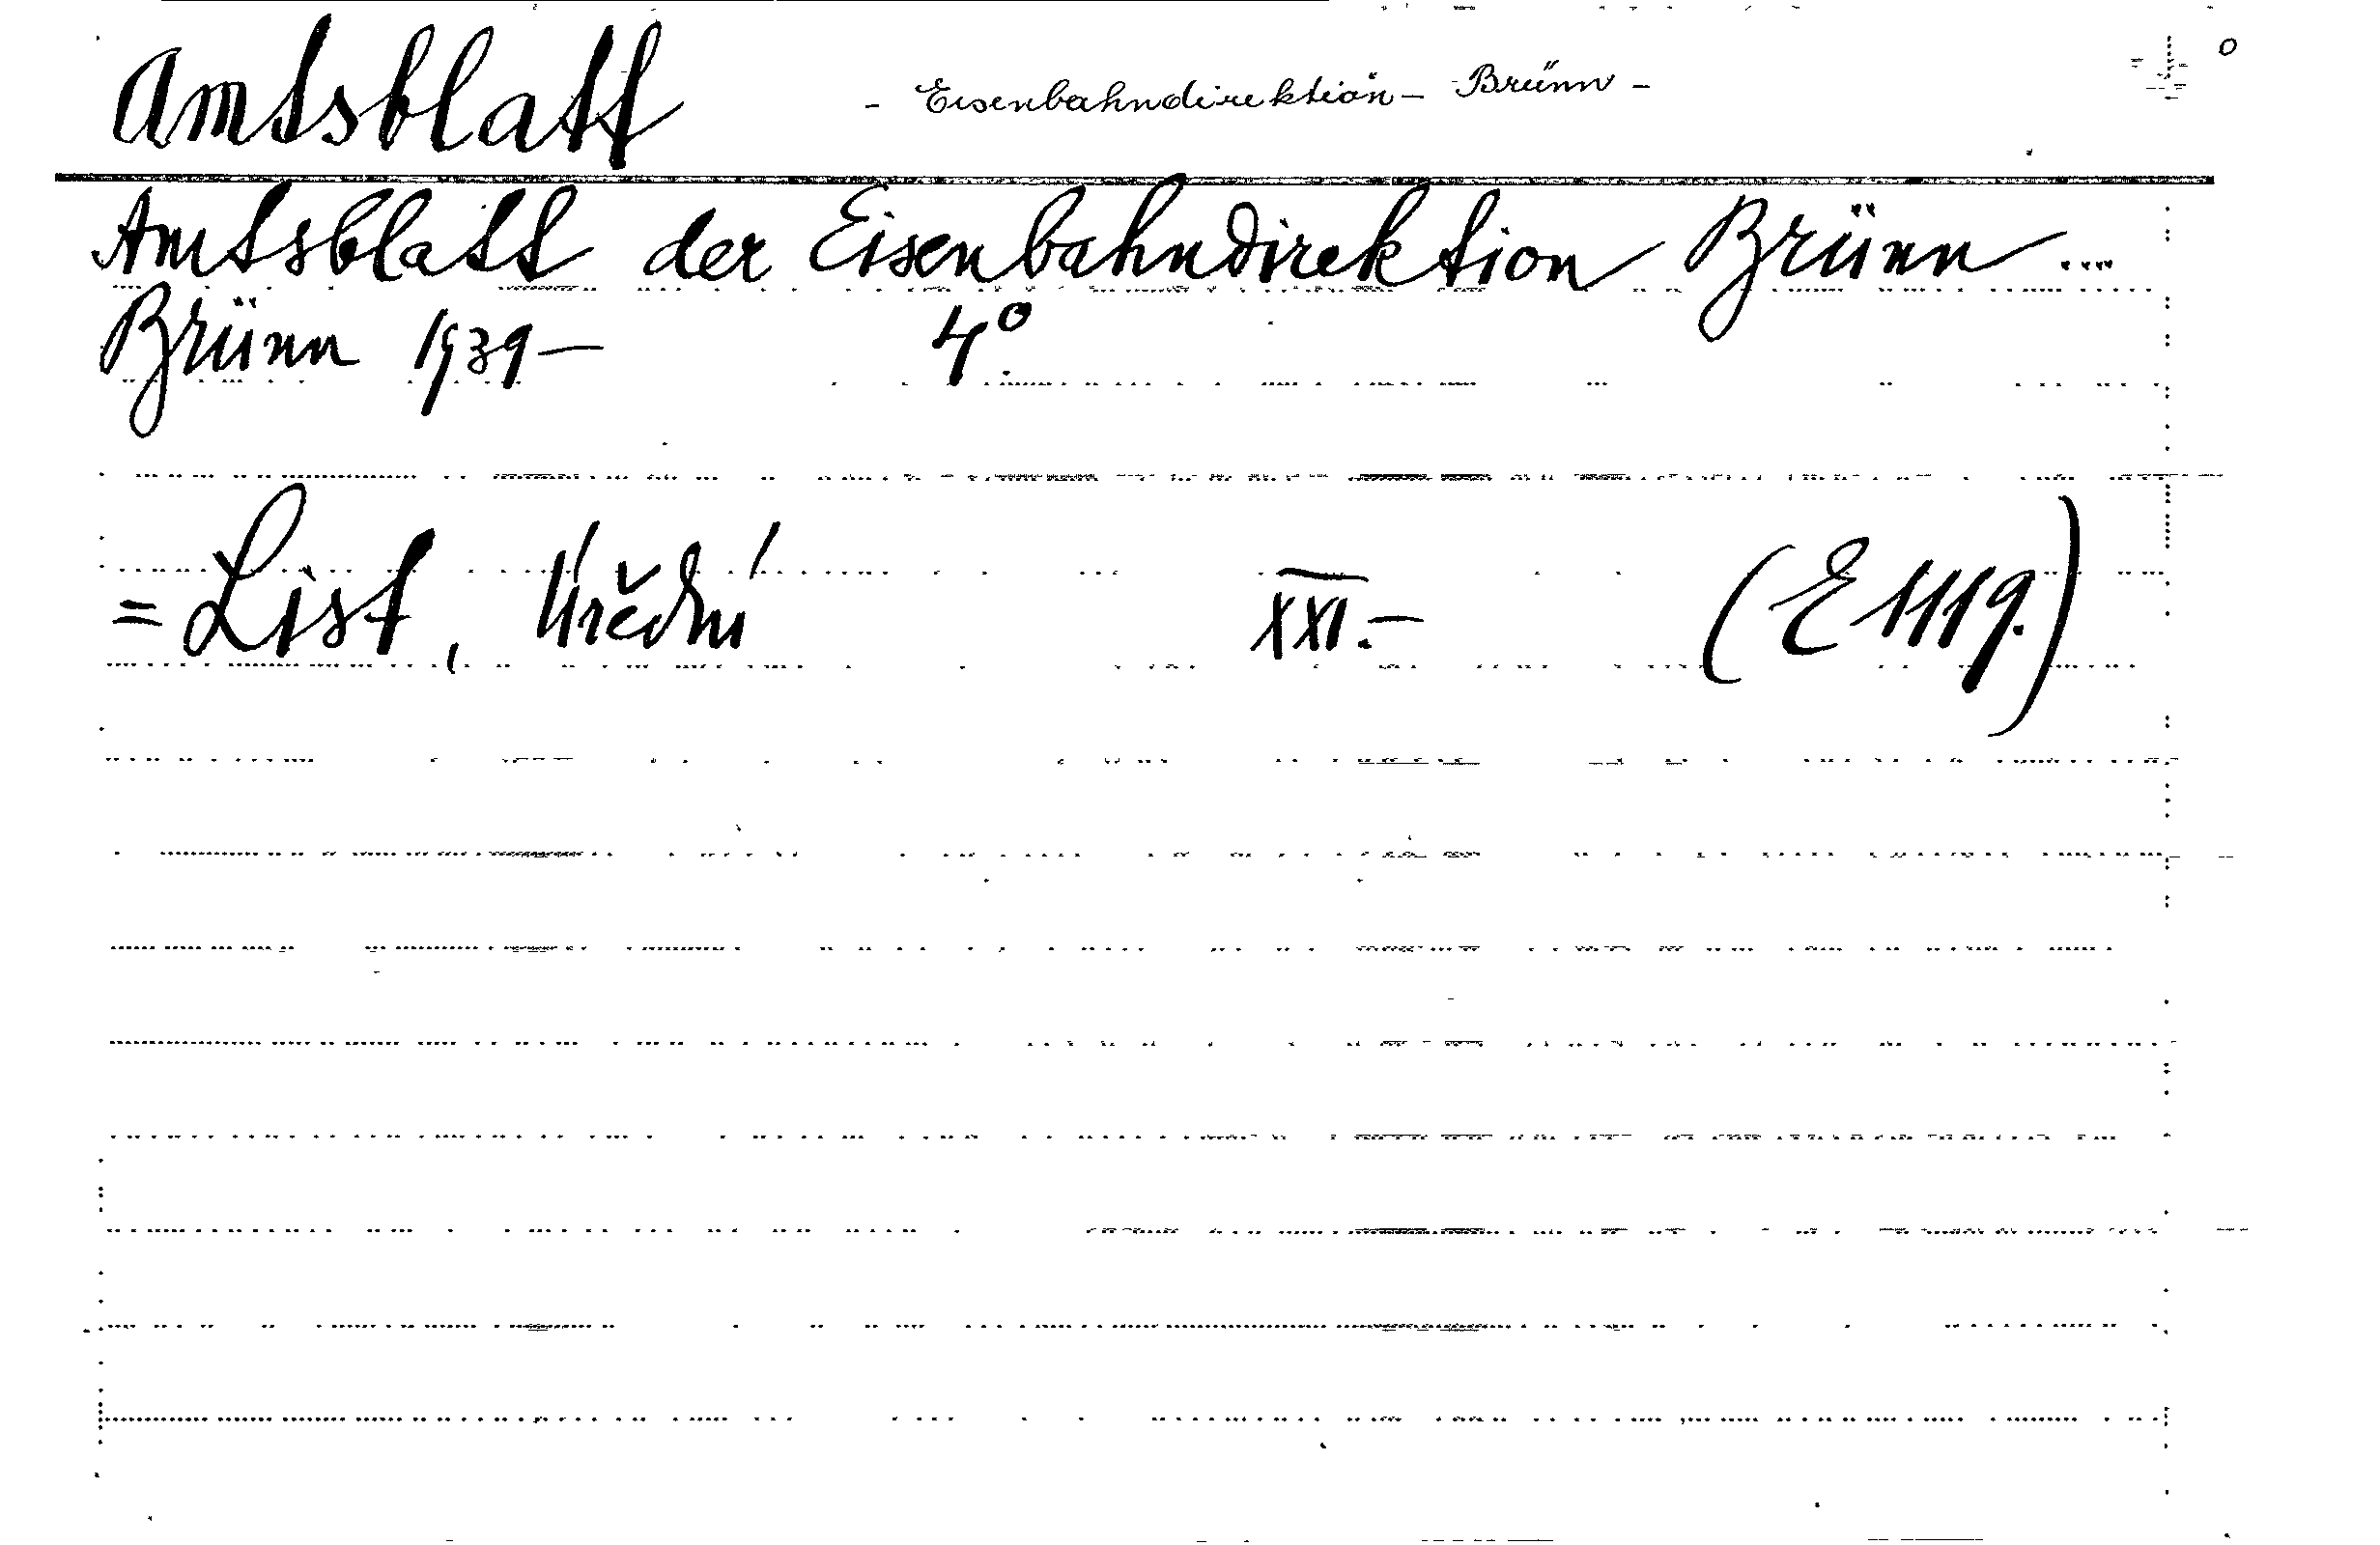 Amtsblatt - Eisenbahndirektion - Brünn -
Amtsblatt der Eisenbahndirektion Brünn ....
Brünn 1939- 4°.
= List, Úřední XXI.- (E 1119.)